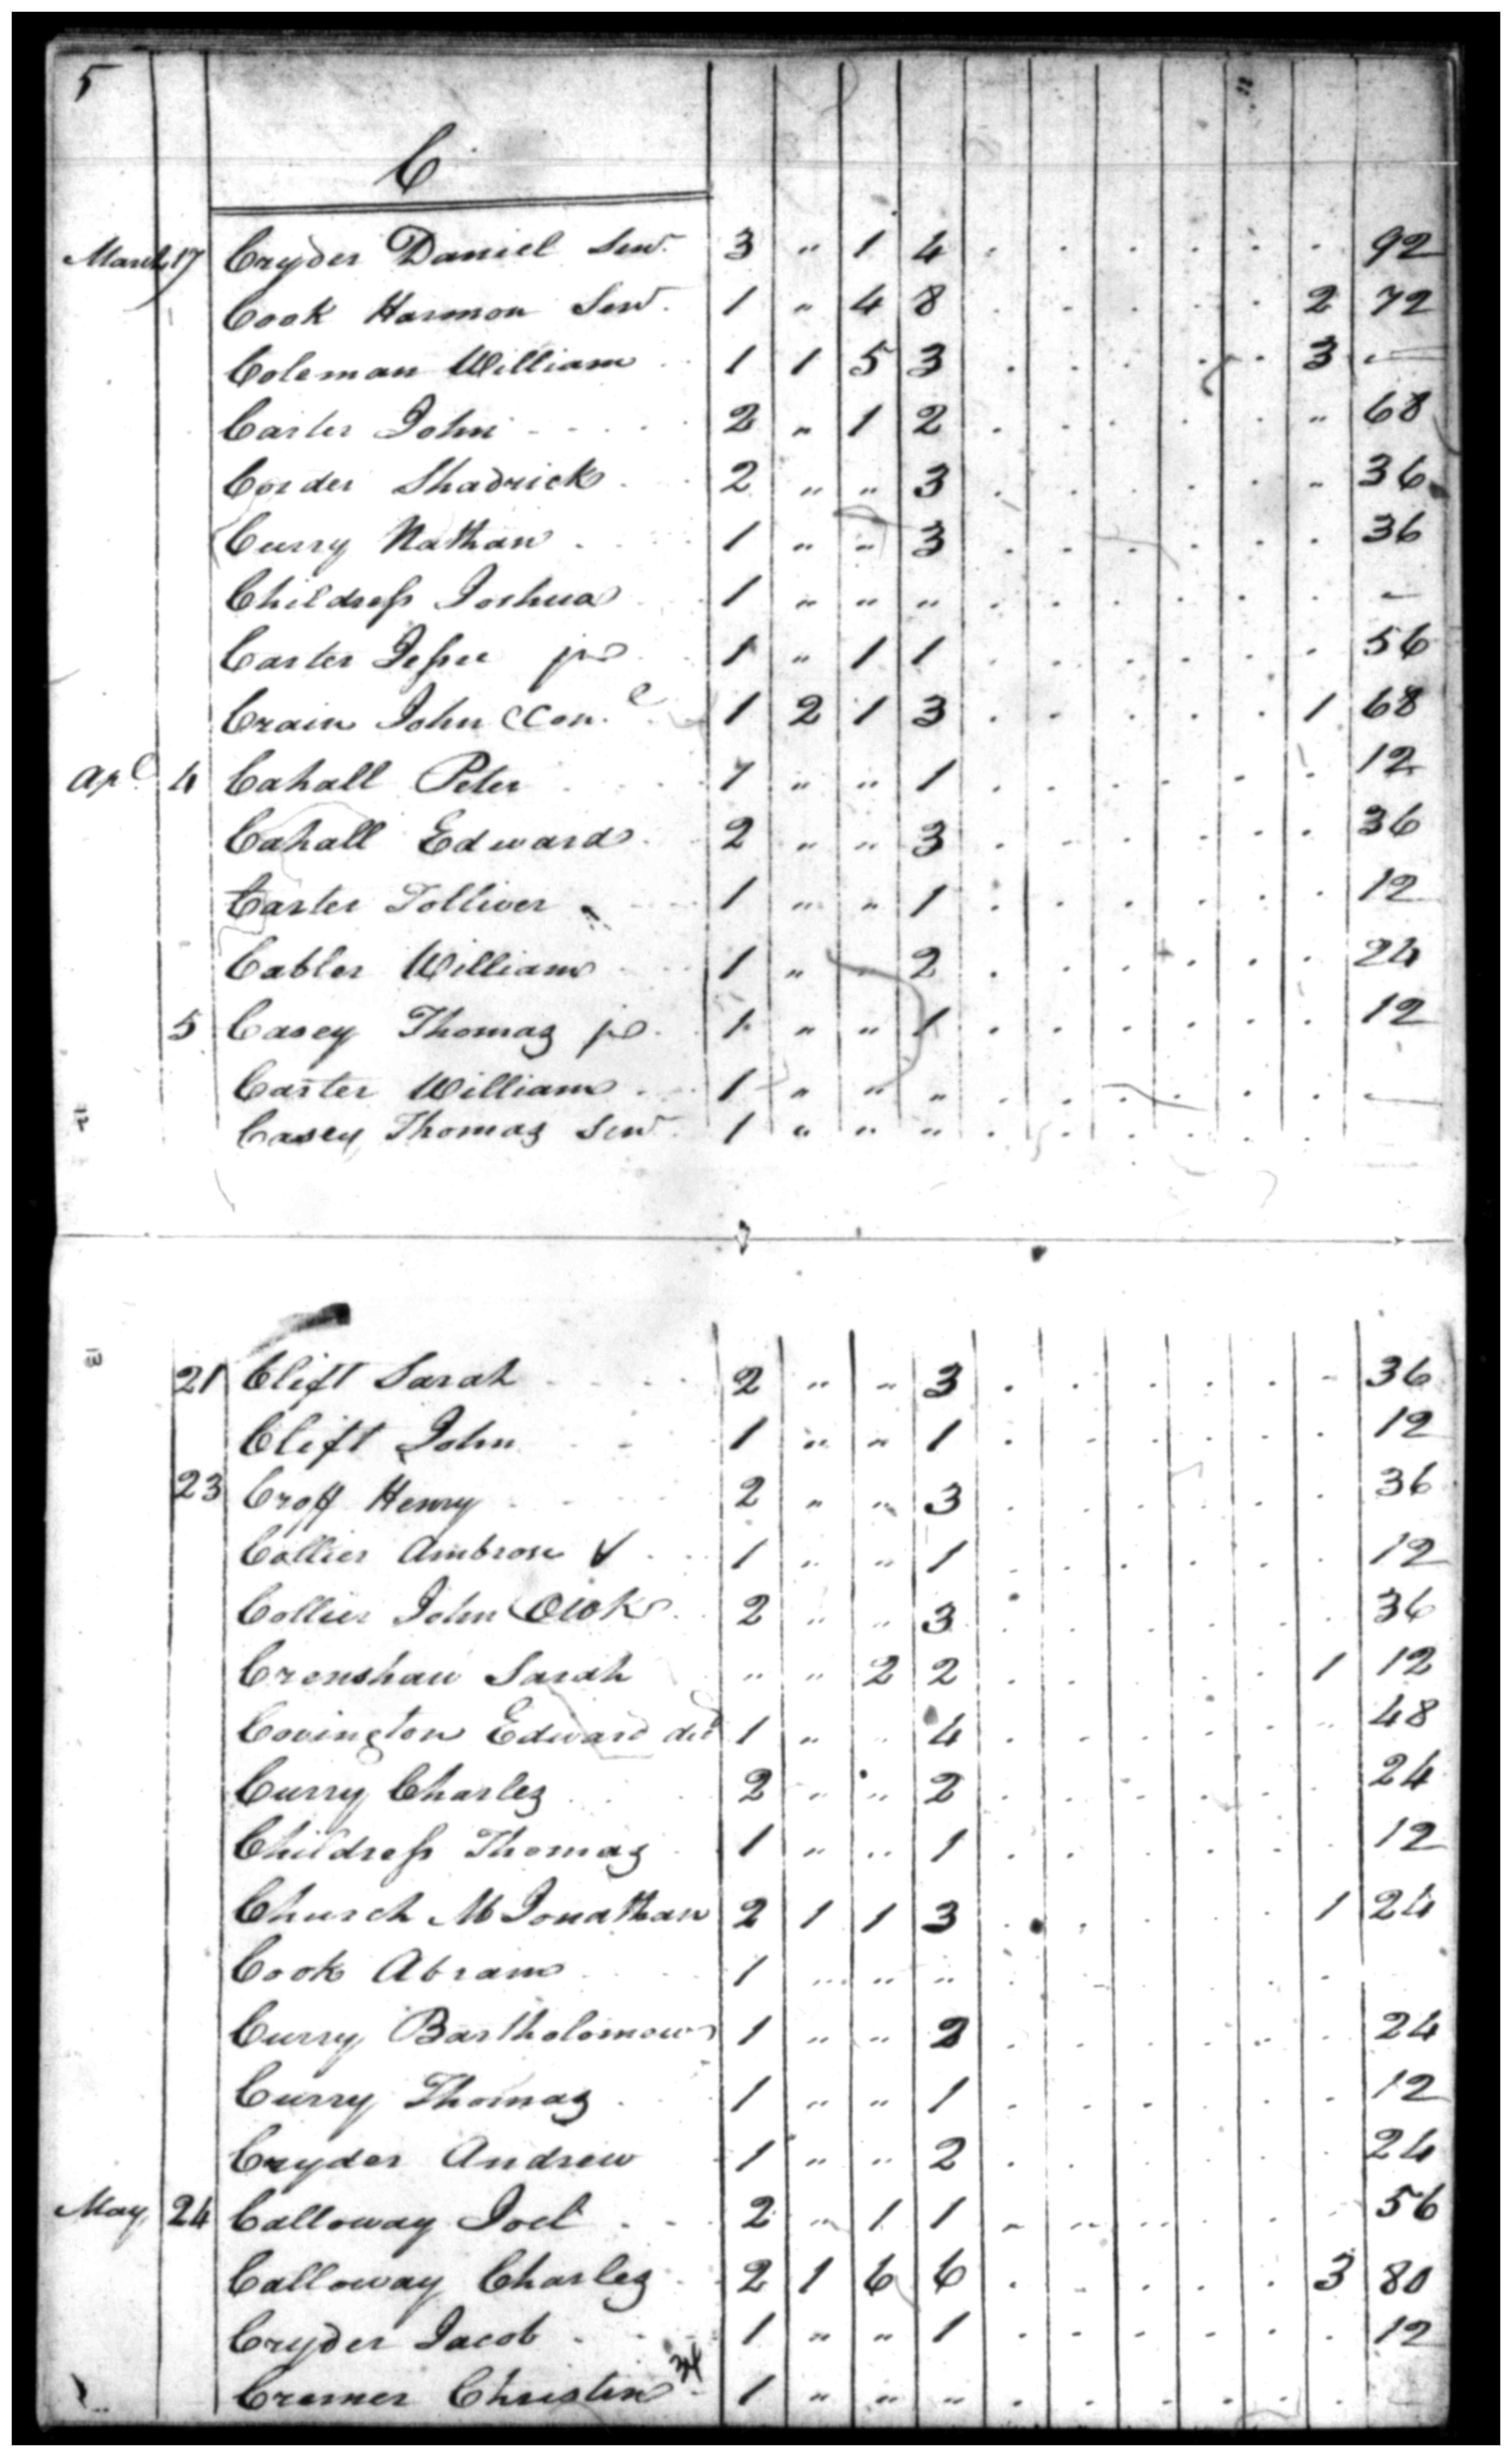 5
C
March 17 Cryder Daniel Senr. 3 " 1 4 . . . . . . 92
Cook Harmon Senr. 1 " 4 8 . . . . . 2 72
Coleman William 1 1 5 3 . . . . . 3 —
Carter John 2 " 1 2 . . . . . " 68
Corder Shadrick 2 " " 3 . . . . . . 36
Curry Nathan 1 " " 3 . . . . . . 36
Childress Joshua 1 " " " . . . . . . —
Carter Jesse jr 1 " 1 1 . . . . . . 56
Crain John 1 2 1 3 . . . . . 1 68
Apl. 4 Cahall Peter 1 " " 1 . . . . . . 12
Cahall Edward 2 " " 3 . . . . . . 36
Carter Tolliver 1 " " 1 . . . . . . 12
Cabler William 1 " " 2 . . . . . . 24
5 Casey Thomas jr 1 " " 1 . . . . . . 12
Carter William 1 " " " . . . . . . —
Casey Thomas Senr 1 " " " . . . . . .
21 Clift Sarah 2 " " 3 . . . . . . 36
Clift John 1 " " 1 . . . . . . 12
23 Croff Henry 2 " " 3 . . . . . . 36
Collier Ambrose V 1 " " 1 . . . . . . 12
Collier John 2 " " 3 . . . . . . 36
Crenshaw Sarah " " 2 2 . . . . . 1 12
Covington Edward decd 1 " " 4 . . . . . " 48
Curry Charles 2 " " 2 . . . . . 24
Childress Thomas 1 " " 1 . . . . . . 12
Church M Jonathan 2 1 1 3 . . . . . 1 24
Cook Abram 1 " " " . . . . . .
Curry Bartholomew 1 " " 2 . . . . . . 24
Curry Thomas 1 " " 1 . . . . . . 12
Cryder Andrew 1 " " 2 . . . . . . 24
May 24 Calloway Joel 2 " 1 1 . . . . . . 56
Calloway Charles 2 1 6 6 . . . . . 3 80
Cryder Jacob 1 " " 1 . . . . . . 12
Cremer Christin 34 1 " " " . . . . . .